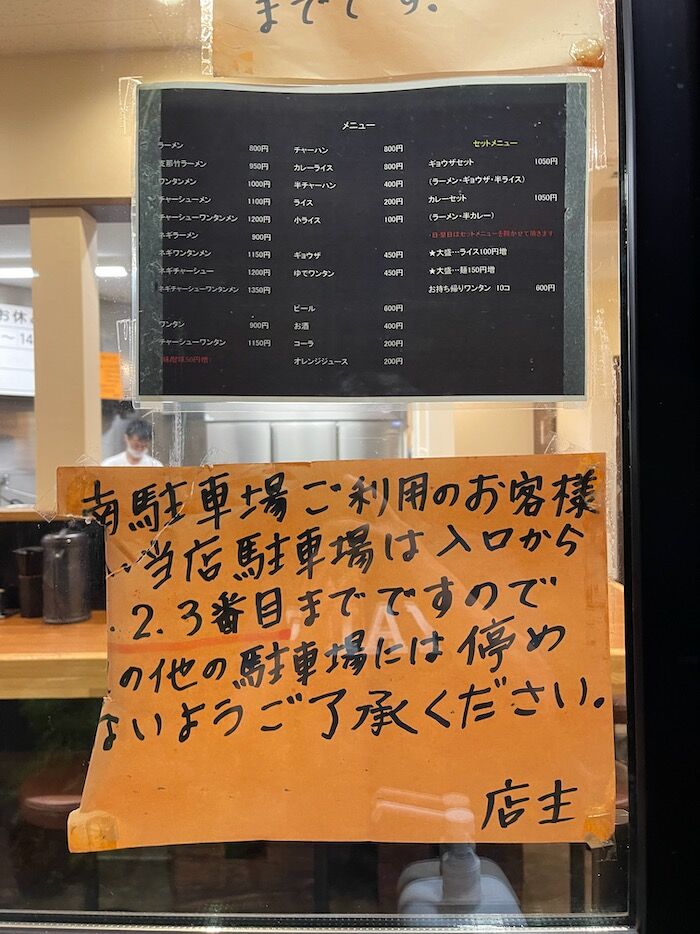 までです.
メニュー
ラーメン 800円
支那竹ラーメン 950円
ワンタンメン 1000円
チャーシューメン 1100円
チャーシューワンタンメン 1200円
ネギラーメン 900円
ネギワンタンメン 1150円
ネギチャーシュー 1200円
ネギチャーシューワンタンメン 1350円
ワンタン 900円
チャーシューワンタン 1150円
味 50円増
チャーハン 800円
カレーライス 800円
半チャーハン 400円
ライス 200円
小ライス 100円
ギョウザ 450円
ゆでワンタン 450円
ビール 600円
お酒 400円
コーラ 200円
オレンジジュース 200円
セットメニュー
ギョウザセット 1050円
(ラーメン・ギョウザ・半ライス)
カレーセット 1050円
(ラーメン・半カレー)
・日・祭日はセットメニューを除かせて頂きます
★大盛…ライス100円増
★大盛…麺150円増
お持ち帰りワンタン 10コ 600円
お休
〜14
南駐車場ご利用のお客様
当店駐車場は入口から
2.3番目までですので
の他の駐車場には停め
ないようご了承ください。
店主